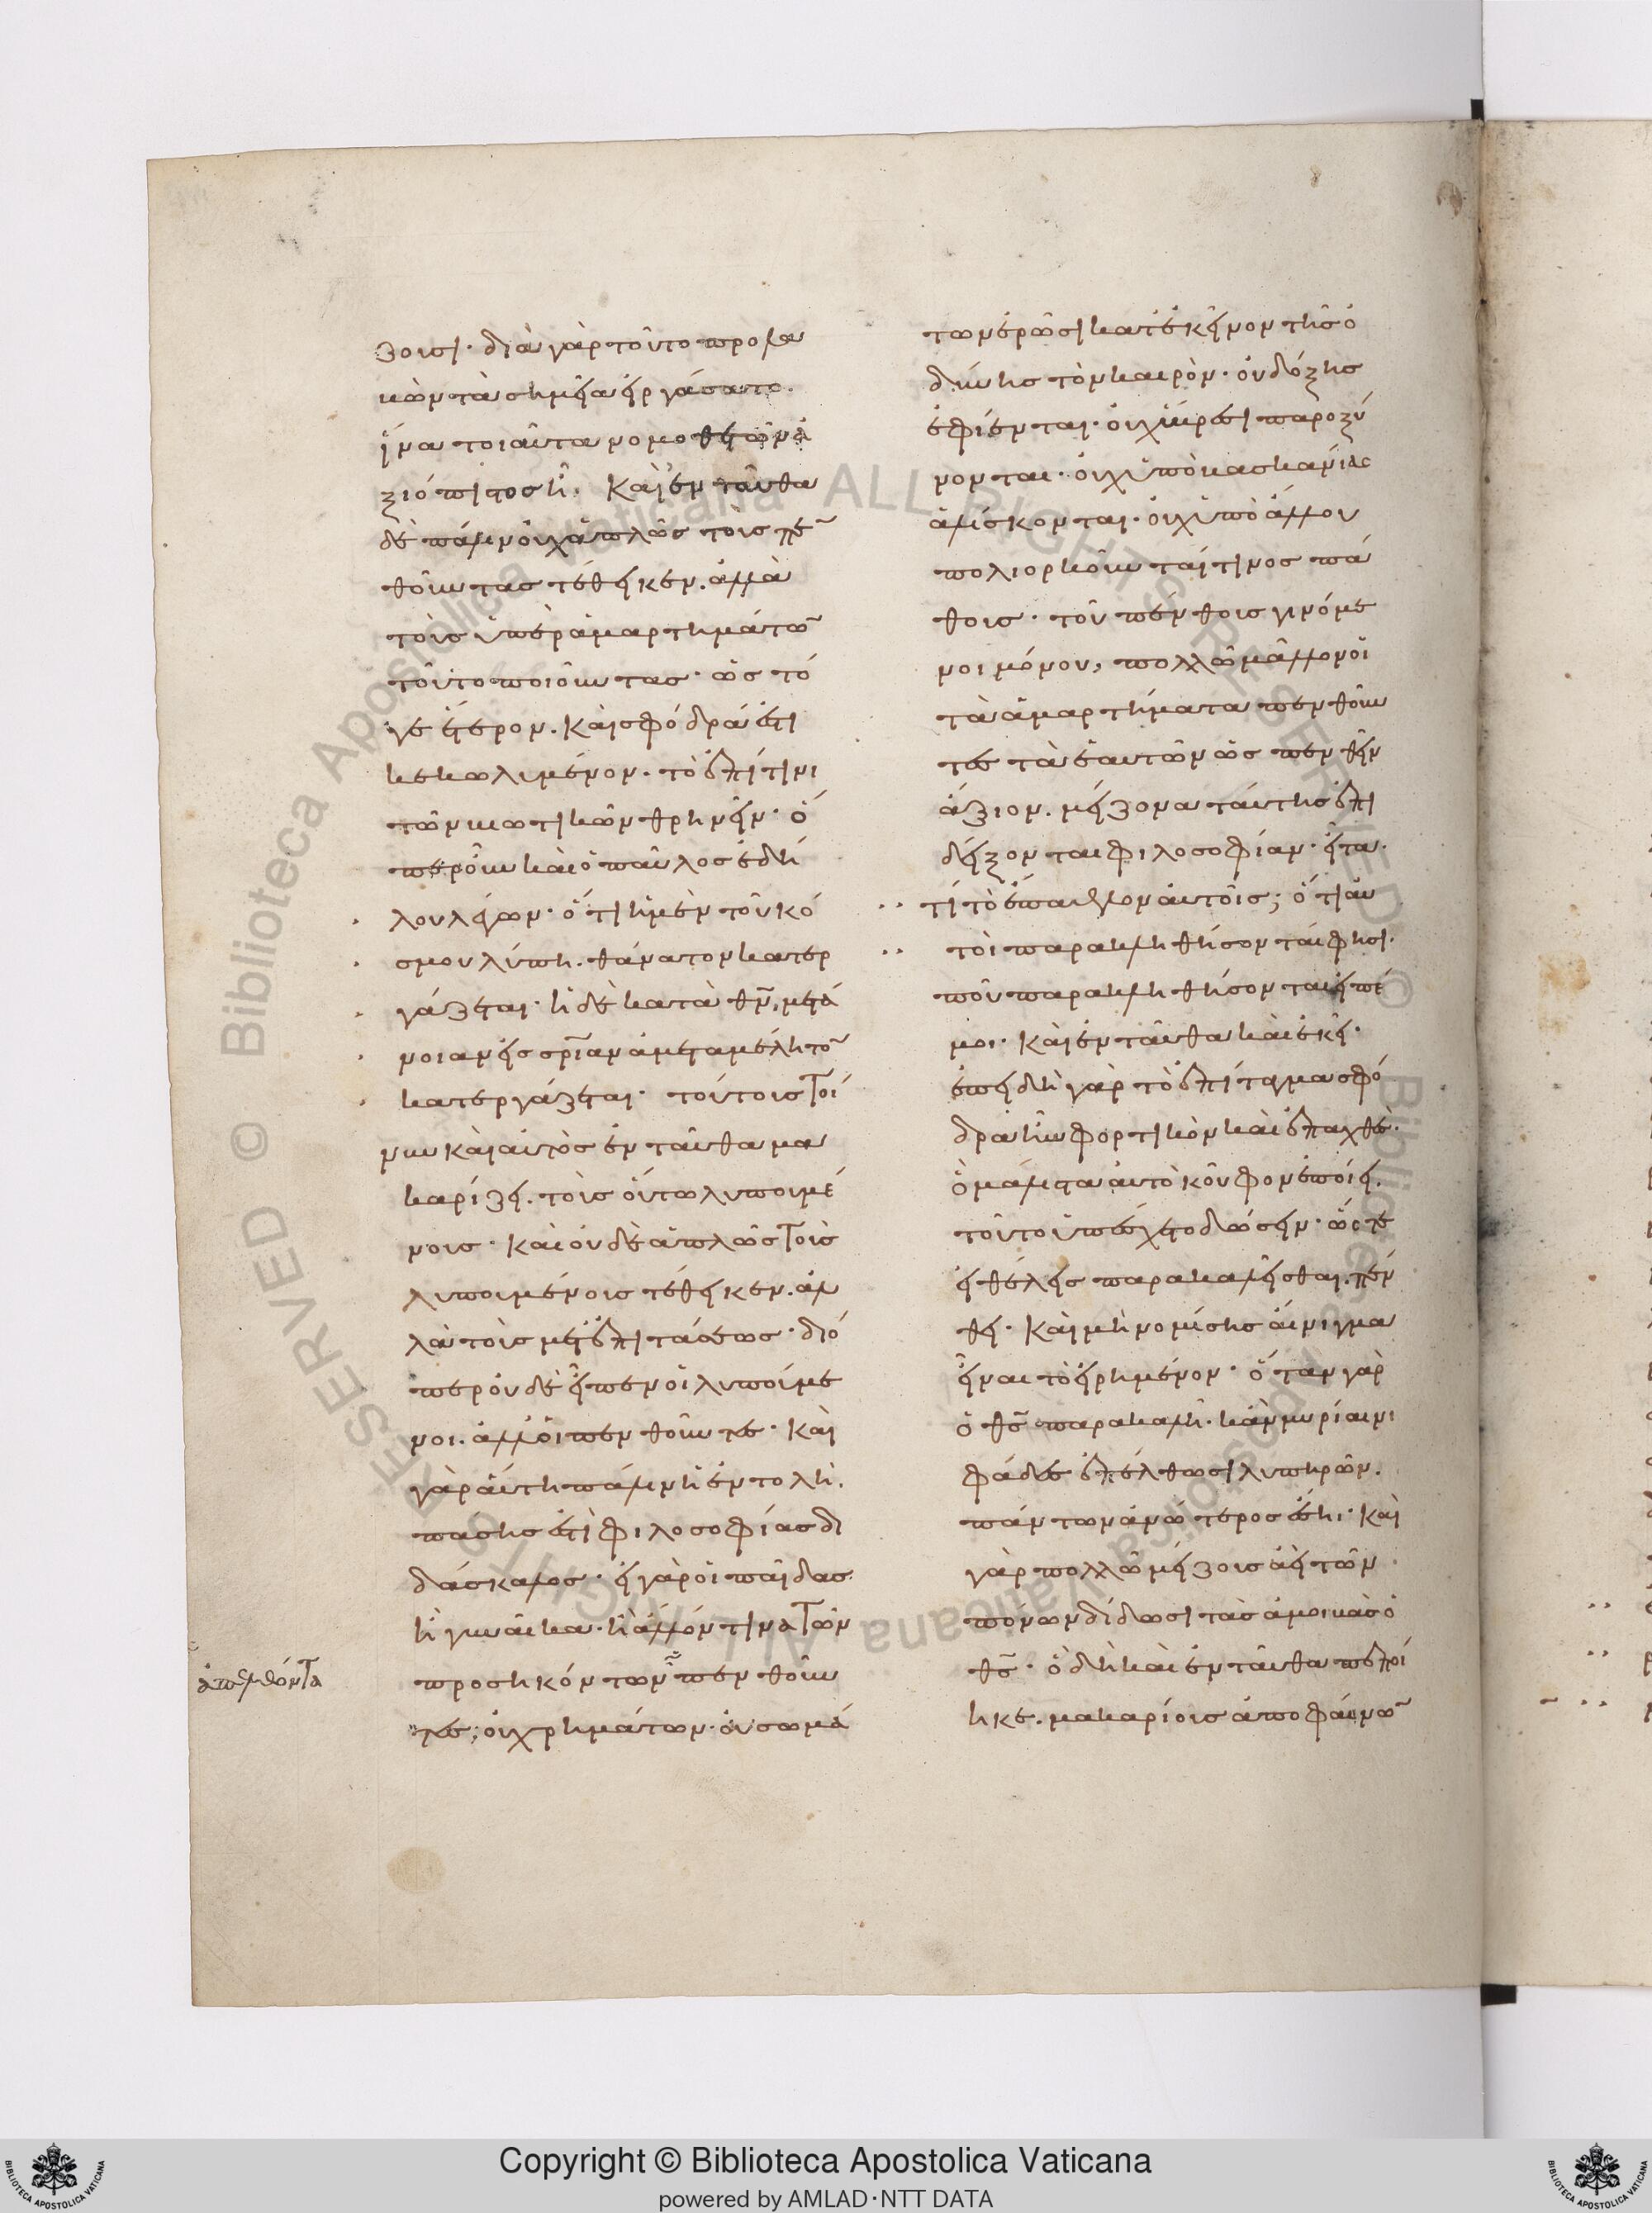 ζουσι· διὰ γὰρ τοῦτο προλα
βὼν τὰ σημεῖα εἰργάσατο.
ἵνα τοιαῦτα νομοθετῶν ἀ
ξιόπιστος ᾖ. Καὶ ἐνταῦθα
δὲ πάλιν οὐχ ἁπλῶς τοὺς πε̄
θοῦντας τέθεικεν. ἀλλὰ
τοὺς ὑπὲρ ἁμαρτημάτω̄
τοῦτο ποιοῦντας· ὡς τό
γε ἕτερον. καὶ σφόδρα ἐστὶ
κεκωλυμένον. τὸ ἐπί τινι
τῶν βιωτικῶν θρηνεῖν· ὅ
περ οὖν καὶ ὁ παῦλος ἐδή
λου λέγων· ὅτι ἡ μὲν τοῦ κό
σμου λύπη. θάνατον κατερ
γάζεται· ἡ δὲ κατὰ θν̄, μετά
νοιαν εἰς σρ̄ίαν ἀμεταμέλητο̄
κατεργάζεται· τούτους τοί
νυν καὶ αὐτὸς ἐνταῦθα μα
καρίζει. τοὺς οὕτω λυπουμέ
νους· καὶ οὐδὲ ἁπλῶς τοὺς
λυπουμένους τέθεικεν. ἀλ
λὰ τοὺς μετ' ἐπιτάσεως· διό
περ οὐδὲ εἶπεν οἱ λυπούμε
νοι. ἀλλ' οἱ πενθοῦντες· καὶ
γὰρ αὕτη πάλιν ἡ ἐντολὴ.
πάσης ἐστὶ φιλοσοφίας δι
δάσκαλος· εἰ γὰρ οἱ παῖδας
ἢ γυναῖκα. ἢ ἄλλόν τινα τῶν
ἀπελθόντα
προσηκόντων πενθοῦν
τες; οὐ χρημάτων. οὐ σωμά
των ἐρῶσι κατ' ἐκεῖνον τῆς ὀ
δύνης τὸν καιρὸν. οὐ δόξης
ἐφίενται. οὐχ ὕβρεσι παροξύ
νονται. οὐχ ὑπὸ βασκανίας
ἁλίσκονται. οὐχ ὑπὸ ἄλλου
πολιορκοῦνταί τινος πά
θους· τοῦ πένθους γινόμε
νοι μόνου, πολλῷ μᾶλλον οἱ
τὰ ἁμαρτήματα πενθοῦν
τες τὰ ἑαυτῶν ὡς πενθεῖν
ἄξιον. μείζονα ταύτης ἐπι
δείξονται φιλοσοφίαν· εἶτα.
τί τὸ ἔπαθλον αὐτοῖς; ὅτι αὐ
τοὶ παρακληθήσονται φησι.
ποῦ παρακληθήσονται εἰπέ
μοι. καὶ ἐνταῦθα καὶ ἐκεῖ.
ἐπειδὴ γὰρ τὸ ἐπίταγμα σφό
δρα ἦν φορτικὸν καὶ ἐπαχθὲς.
ὃ μάλιστα αὐτὸ κοῦφον ἐποίει.
τοῦτο ὑπέσχετο δώσειν· ὥστε
εἰ θέλεις παρακαλεῖσθαι. πέν
θει· καὶ μὴ νομίσης αἴνιγμα
εἶναι τὸ εἰρημένον· ὅταν γὰρ
ὁ θς̄ παρακαλῇ. κἂν μυρίαι νι
φάδες ἐπέλθωσι λυπηρῶν.
πάντων ἀνώτερος ἔσῃ· καὶ
γὰρ πολλῷ μείζους ἀεὶ τῶν
πόνων δίδωσι τὰς ἀμοιβὰς ὁ
θς̄· ὃ δὴ καὶ ἐνταῦθα πεποί
ηκε. μακαρίους ἀποφαίνω̄
Copyright © Biblioteca Apostolica Vaticana
powered by AMLAD·NTT DATA